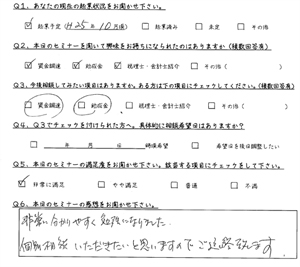 Q1. あなたの現在の起業状況をお聞かせ下さい。
☑ 起業予定(H25年10月頃) □ 起業済み □ 未定 □ その他
Q2. 本日のセミナーを聞いて興味をお持ちになられたのはありますか(複数回答有)
☑ 資金調達 ☑ 助成金 □ 税理士・会計士紹介 □ その他( )
Q3. 今後相談してみたい項目はありますか。ある方は下の項目にチェックしてください。(複数回答有)
□ 資金調達 □ 助成金 □ 税理士・会計士紹介 □ その他( )
Q4. Q3でチェックを付けられた方へ。具体的に相談希望日はありますか?
□ 年 月 日 時頃希望 □ 希望日を後日調整したい
Q5. 本日のセミナーの満足度をお聞かせ下さい。該当する項目にチェックをして下さい。
☑ 非常に満足 □ やや満足 □ 普通 □ 不満
Q6. 本日のセミナーの感想をお聞かせ下さい。
非常に分かりやすく勉強になりました。
個別相談いただきたいと思いますのでご連絡致します。